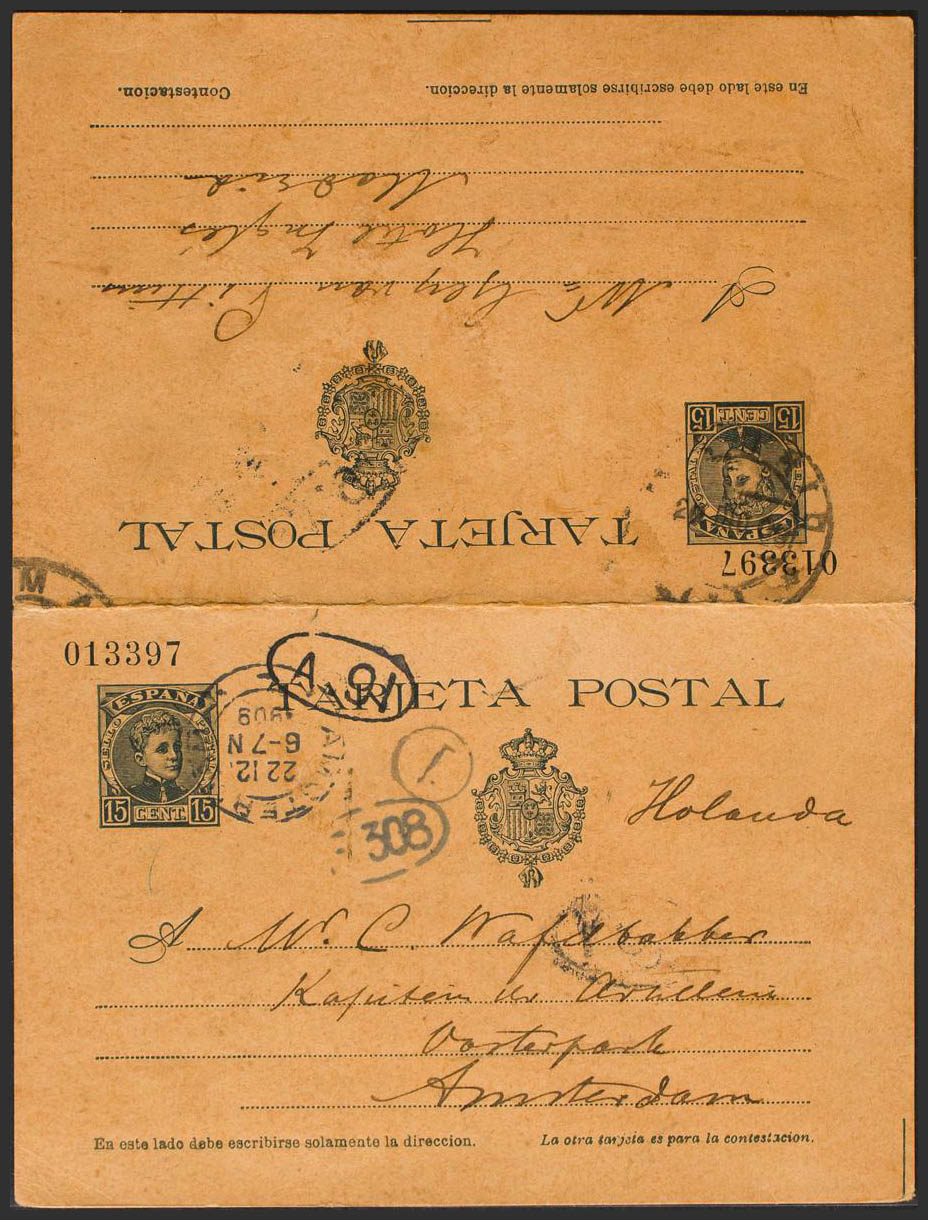 En este lado debe escribirse solamente la direccion.
Contestacion.
A Mr Gey van Pittius
Hotel Inglés
Madrid
TARJETA POSTAL
15 CENT. 15
ESPAÑA
013397
013397
ESPAÑA
SELLO POSTAL
15 CENT. 15
A.Q1
TARJETA POSTAL
22 12.
6-7 N
1909
1
308
Holanda
A Mr. C.
Kapitein der Artillerie
Oosterpark
Amsterdam
En este lado debe escribirse solamente la direccion.
La otra tarjeta es para la contestacion.